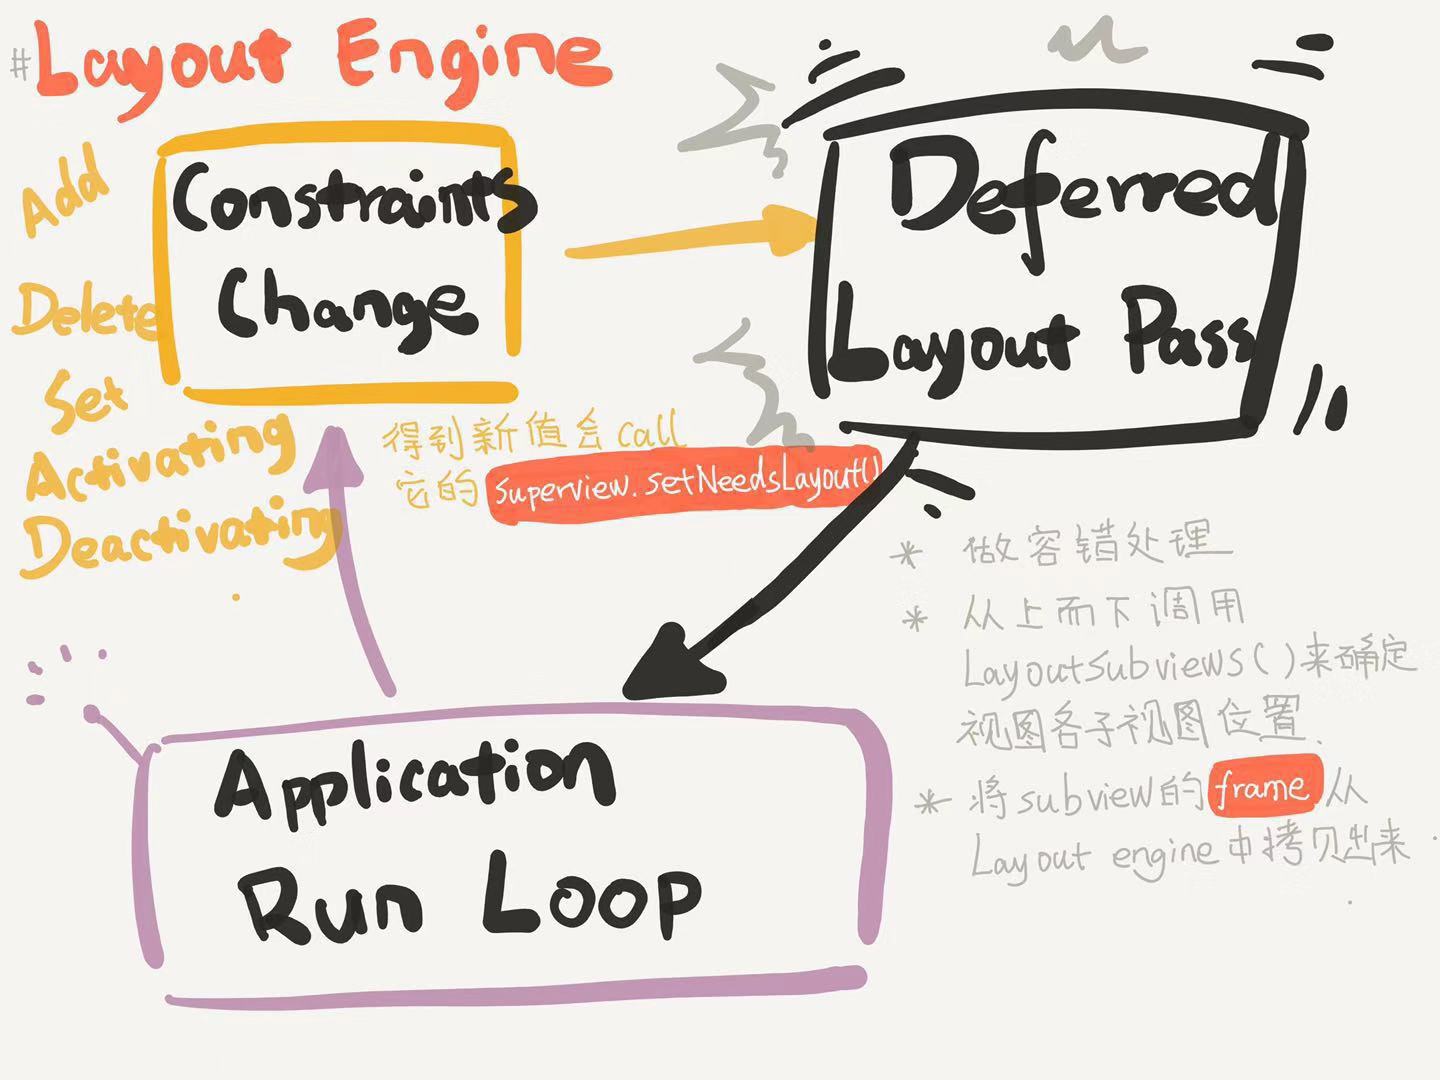 #Layout Engine
Add
Delete
Set
Activating
Deactivating
Constraints
Change
得到新值会call
它的 superview.setNeedsLayout()
Deferred
Layout Pass
* 做容错处理
* 从上而下调用
Layoutsubviews()来确定
视图各子视图位置.
* 将subview的frame从
Layout engine中拷贝出来
Application
Run Loop